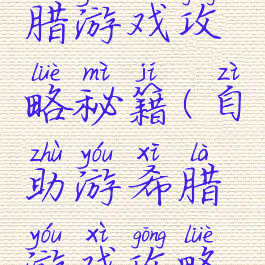 腊游戏攻
lüè mì jí zì
略秘籍(自
zhù yóu xī là
助游希腊
yóu xì gōng lüè
游戏攻略